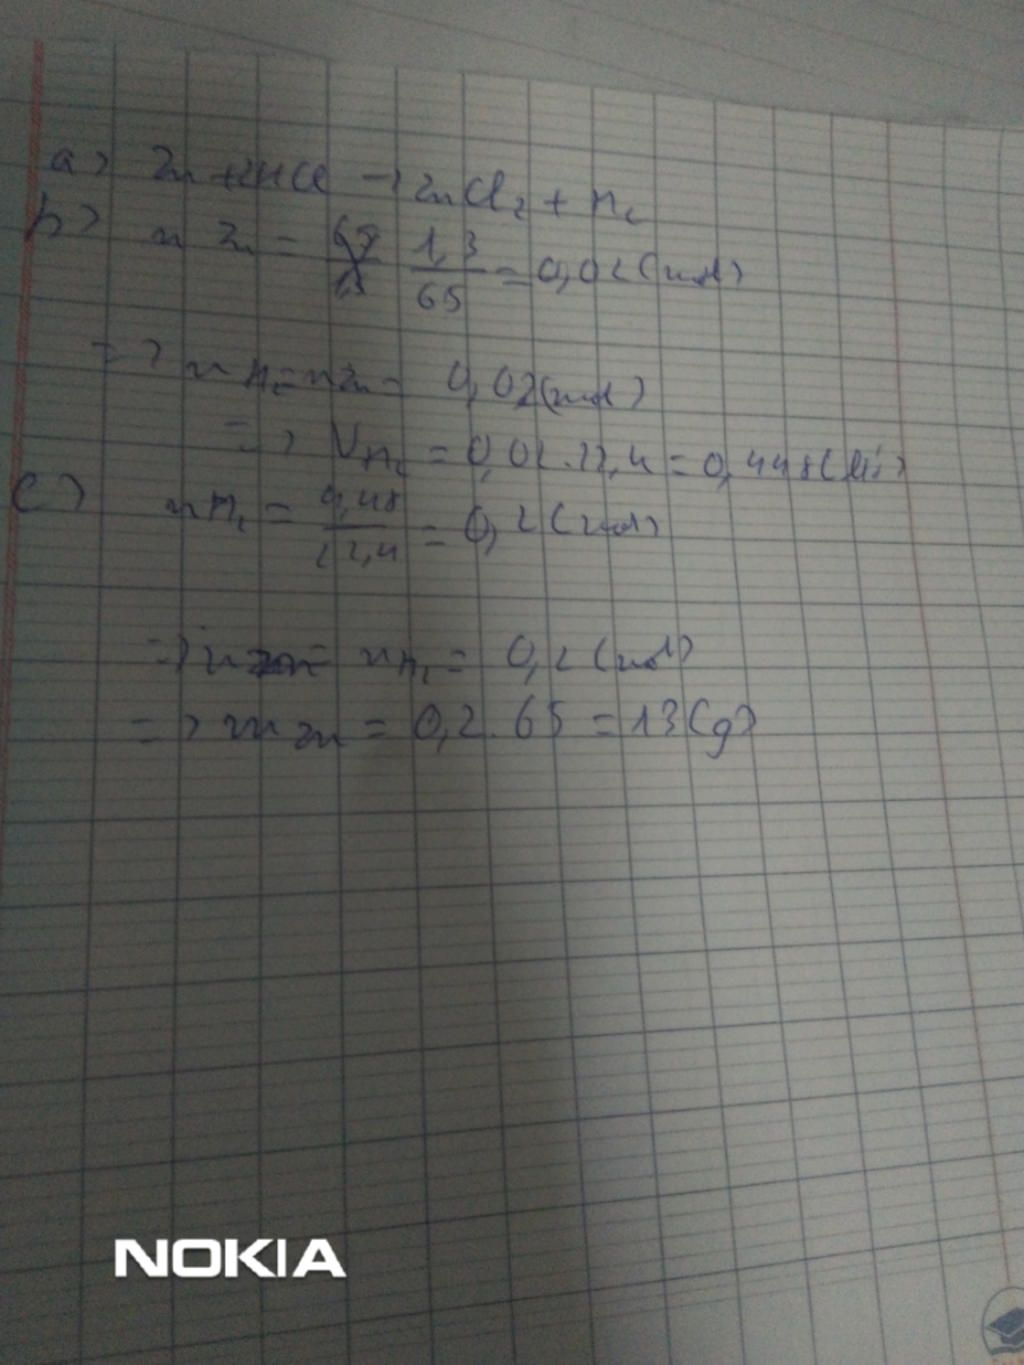 a) Zn + 2HCl → ZnCl₂ + H₂
b) n Zn = 1,3/65 = 0,02 (mol)
=> n H₂ = n Zn = 0,02 (mol)
=> V H₂ = 0,02.22,4 = 0,448 (lít)
c) n H₂ = 4,48/22,4 = 0,2 (mol)
=> n Zn = n H₂ = 0,2 (mol)
=> m Zn = 0,2.65 = 13 (g)
NOKIA